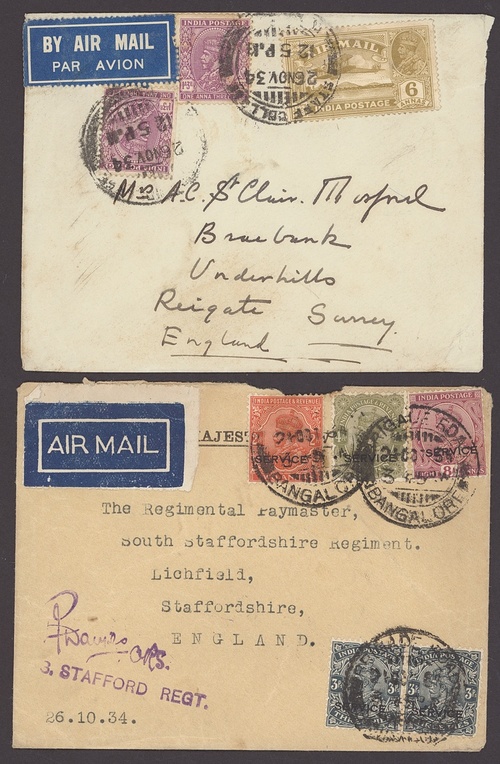 BY AIR MAIL
PAR AVION
INDIA POSTAGE
AIR MAIL
6
ANNAS
INDIA POSTAGE
12 5 P.M
26 NOV 34
12 5 P.M
26 NOV 34
A.C. St Clair. Morford
Braebank
Underhills
Reigate Surrey.
England
AIR MAIL
INDIA POSTAGE & REVENUE
SERVICE
SERVICE
INDIA POSTAGE
SERVICE
8
BANGALORE
BANGALORE
The Regimental Paymaster,
South Staffordshire Regiment.
Lichfield,
Staffordshire,
ENGLAND.
S. STAFFORD REGT.
26.10.34.
INDIA POSTAGE
INDIA POSTAGE
3
3
SERVICE